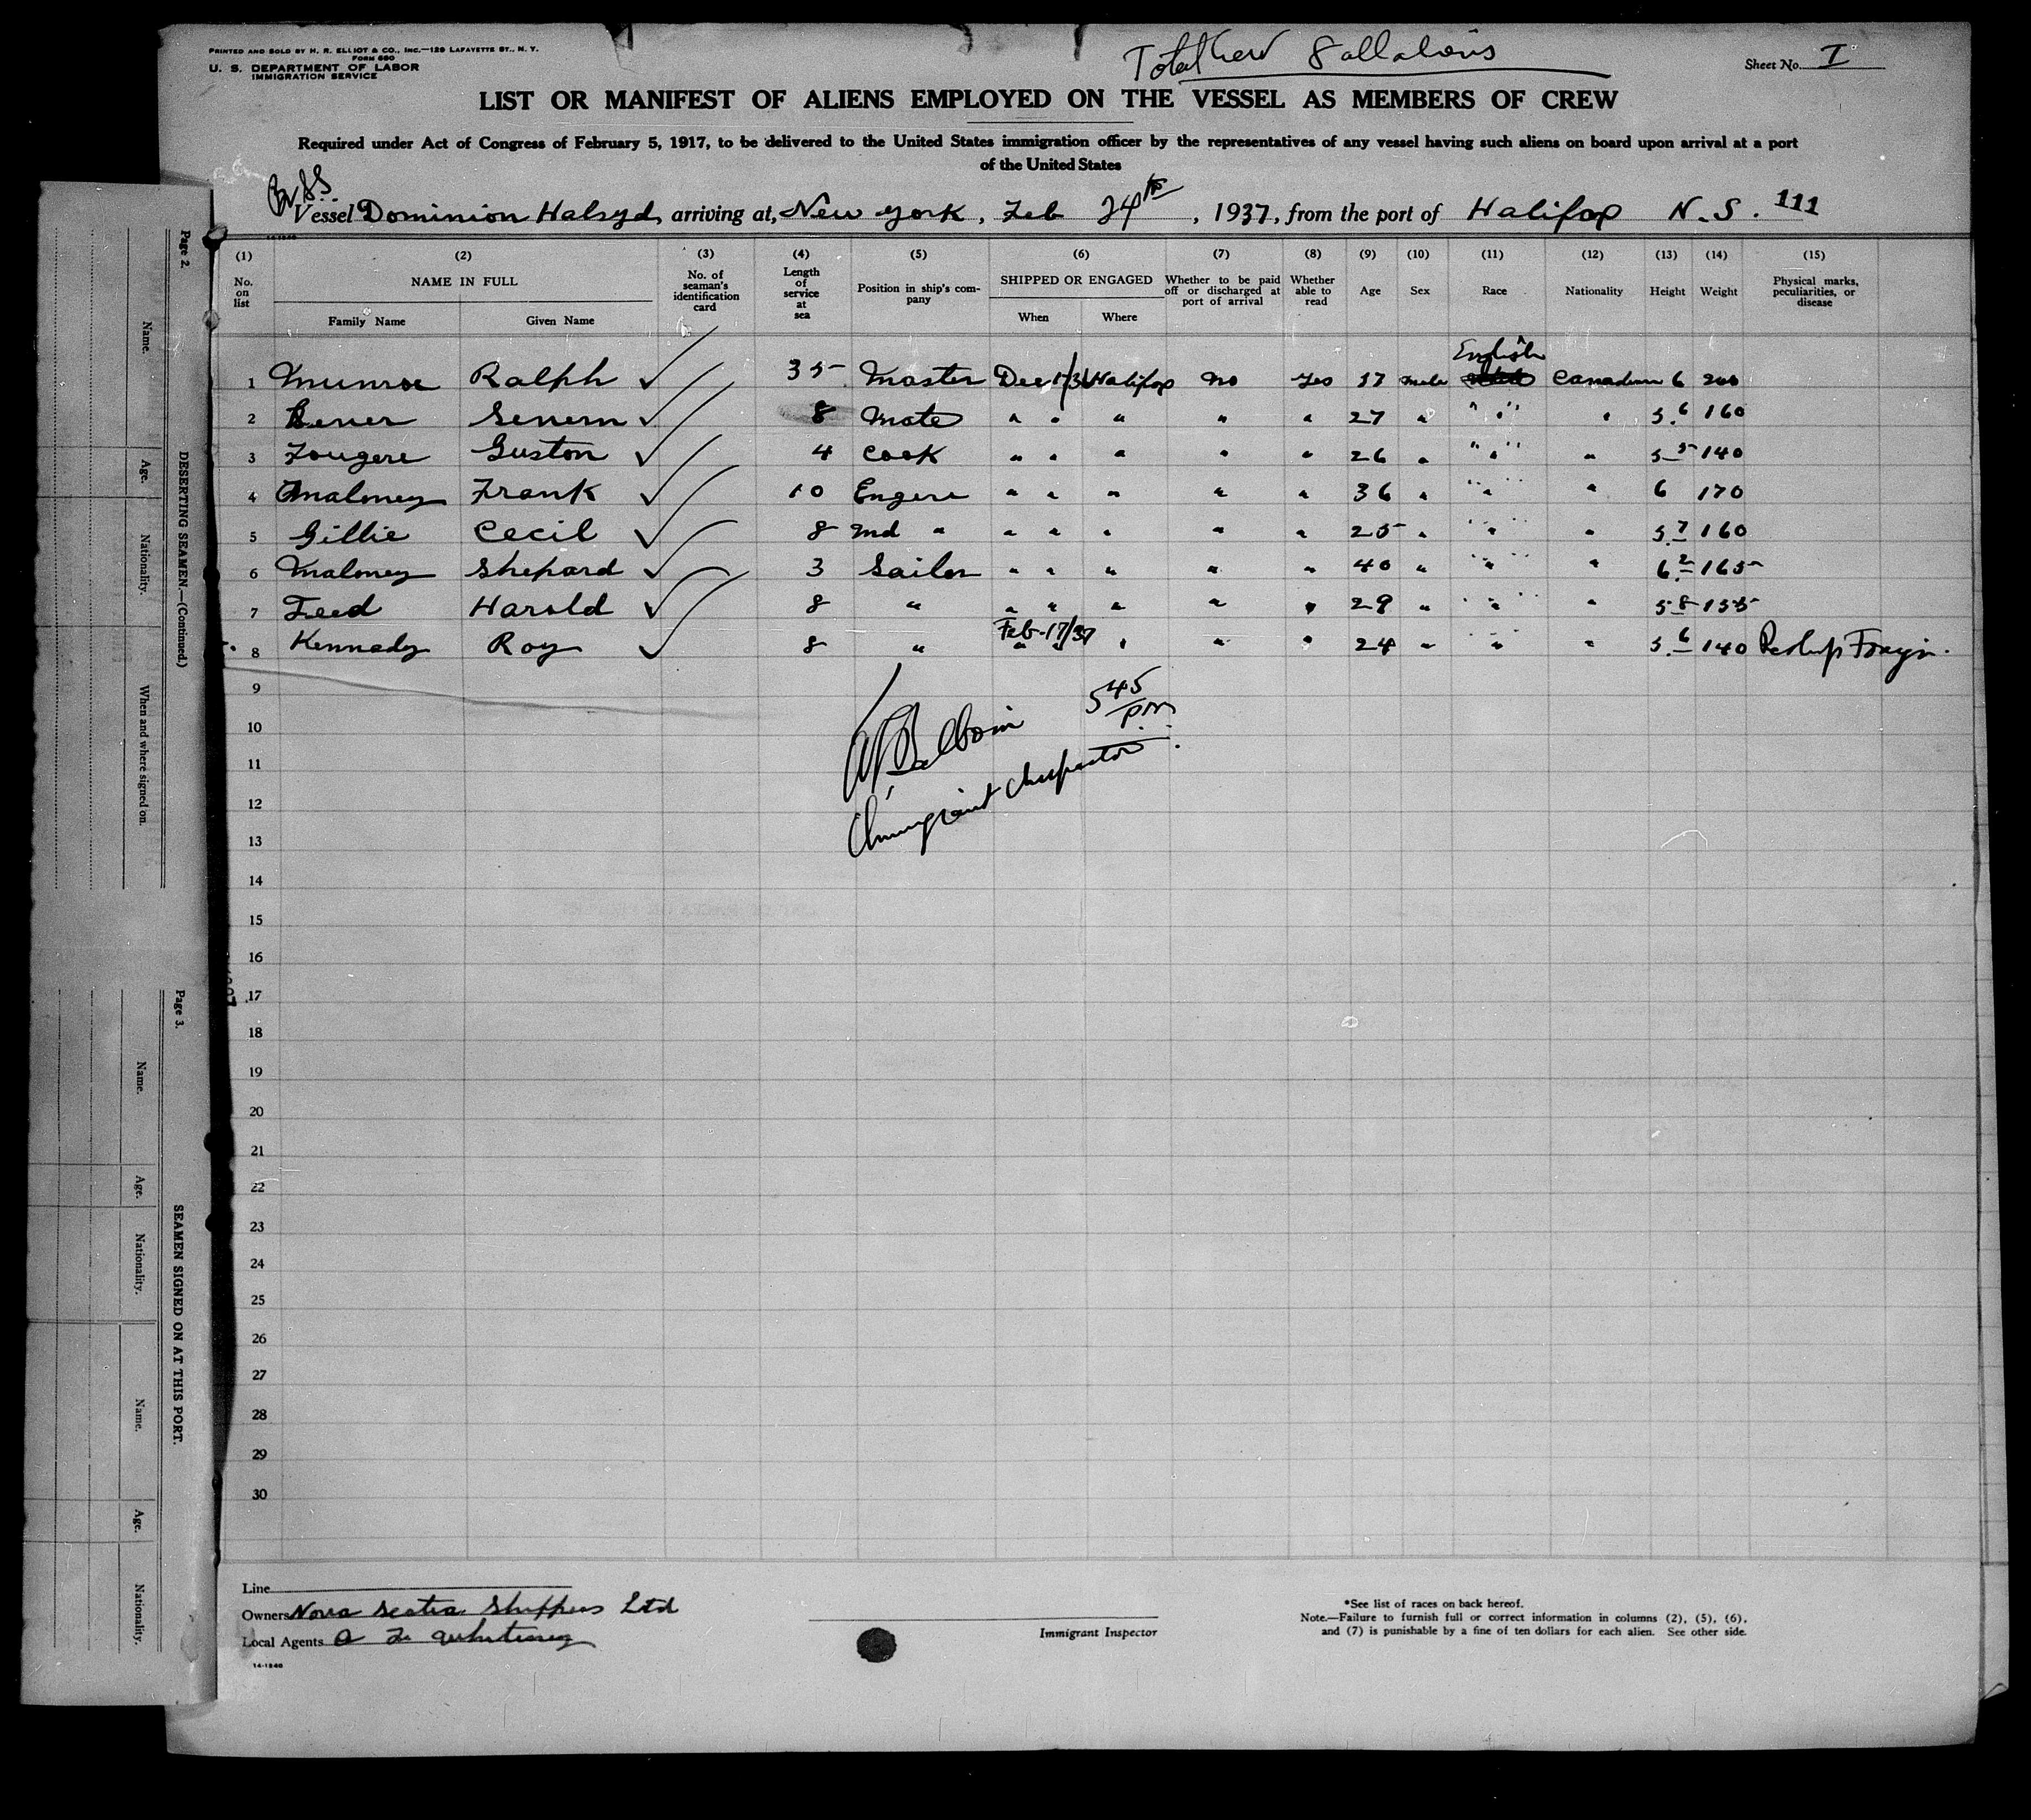 PRINTED AND SOLD BY H. R. ELLIOT & CO., INC.—129 LAFAYETTE ST., N. Y.
FORM 680
U. S. DEPARTMENT OF LABOR
IMMIGRATION SERVICE
Total crew 8 all aliens
Sheet No. I
LIST OR MANIFEST OF ALIENS EMPLOYED ON THE VESSEL AS MEMBERS OF CREW
Required under Act of Congress of February 5, 1917, to be delivered to the United States immigration officer by the representatives of any vessel having such aliens on board upon arrival at a port
of the United States
Br. SS.
Vessel Dominion Halsyd, arriving at, New York, Feb 24th, 1937, from the port of Halifax N.S. 111
14-1240
(1) (2) (3) (4) (5) (6) (7) (8) (9) (10) (11) (12) (13) (14) (15)
No. on list NAME IN FULL Family Name Given Name No. of seaman's identification card Length of service at sea Position in ship's company SHIPPED OR ENGAGED When Where Whether to be paid off or discharged at port of arrival Whether able to read Age Sex Race Nationality Height Weight Physical marks, peculiarities, or disease
English
1 Munroe Ralph ✓ 35 Master Dec 17/36 Halifax No Yes 57 male Canadian 6 200
2 Severn ✓ 8 Mate " " " " " 27 " " " 5.6 160
3 Fougere Guston ✓ 4 Cook " " " " " 26 " " " 5-5 140
4 Maloney Frank ✓ 10 " " " " " 36 " " " 6 170
5 Gillie Cecil ✓ 8 2nd " " " " " " 25 " " " 5.7 160
6 Maloney Shepard ✓ 3 Sailor " " " " " 40 " " " 6.2 165
7 Harold ✓ 8 " " " " " " 29 " " " 5-8 155
8 Kennedy Roy ✓ 8 " Feb-17/37 " " " 24 " " " 5.6 140
9
5 45 pm
10
11
Immigrant Inspector
12
13
14
15
16
17
18
19
20
21
22
23
24
25
26
27
28
29
30
Line
Owners Nova Scotia Shippers Ltd
Local Agents
14-1240
Immigrant Inspector
*See list of races on back hereof.
Note.—Failure to furnish full or correct information in columns (2), (5), (6),
and (7) is punishable by a fine of ten dollars for each alien. See other side.
Page 2.
DESERTING SEAMEN.—(Continued.)
Name.
Age.
Nationality.
When and where signed on.
Page 3.
SEAMEN SIGNED ON AT THIS PORT.
Name.
Age.
Nationality.
Name.
Age.
Nationality.